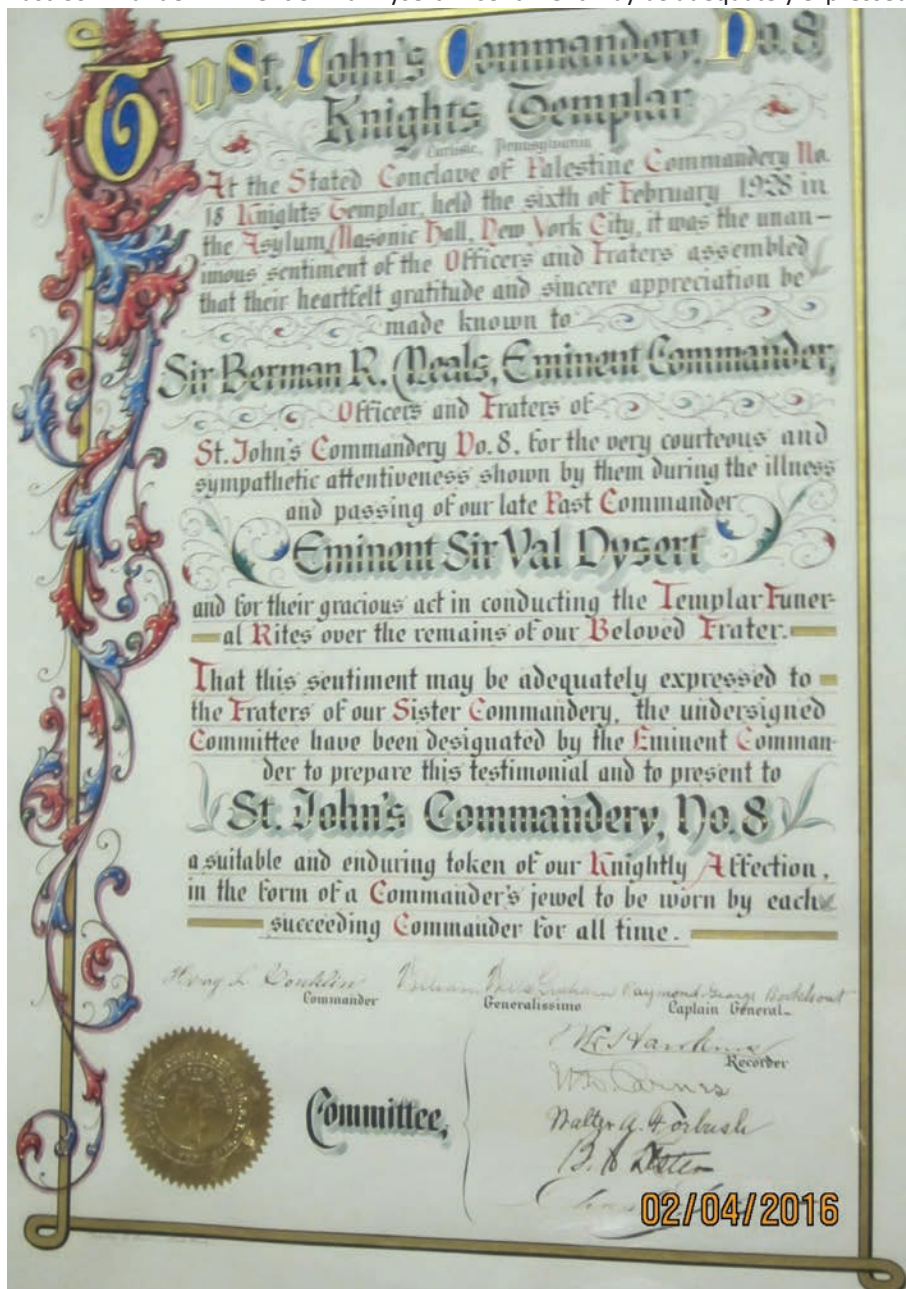 To St. John's Commandery, No. 8,
Knights Templar
Carlisle, Pennsylvania
At the Stated Conclave of Palestine Commandery No.
18 Knights Templar, held the sixth of February 1928 in
the Asylum, Masonic Hall, New York City, it was the unan-
imous sentiment of the Officers and Fraters assembled
that their heartfelt gratitude and sincere appreciation be
made known to
Sir Herman R. Meals, Eminent Commander,
Officers and Fraters of
St. John's Commandery No. 8, for the very courteous and
sympathetic attentiveness shown by them during the illness
and passing of our late Past Commander
Eminent Sir Val Dysert
and for their gracious act in conducting the Templar Funer-
al Rites over the remains of our Beloved Frater.
That this sentiment may be adequately expressed to
the Fraters of our Sister Commandery, the undersigned
Committee have been designated by the Eminent Comman-
der to prepare this testimonial and to present to
St. John's Commandery, No. 8
a suitable and enduring token of our Knightly Affection,
in the form of a Commander's jewel to be worn by each
succeeding Commander for all time.
Conklin Raymond George
Commander Generalissimo Captain General
Recorder
Committee,
Walter A. Forbush
02/04/2016